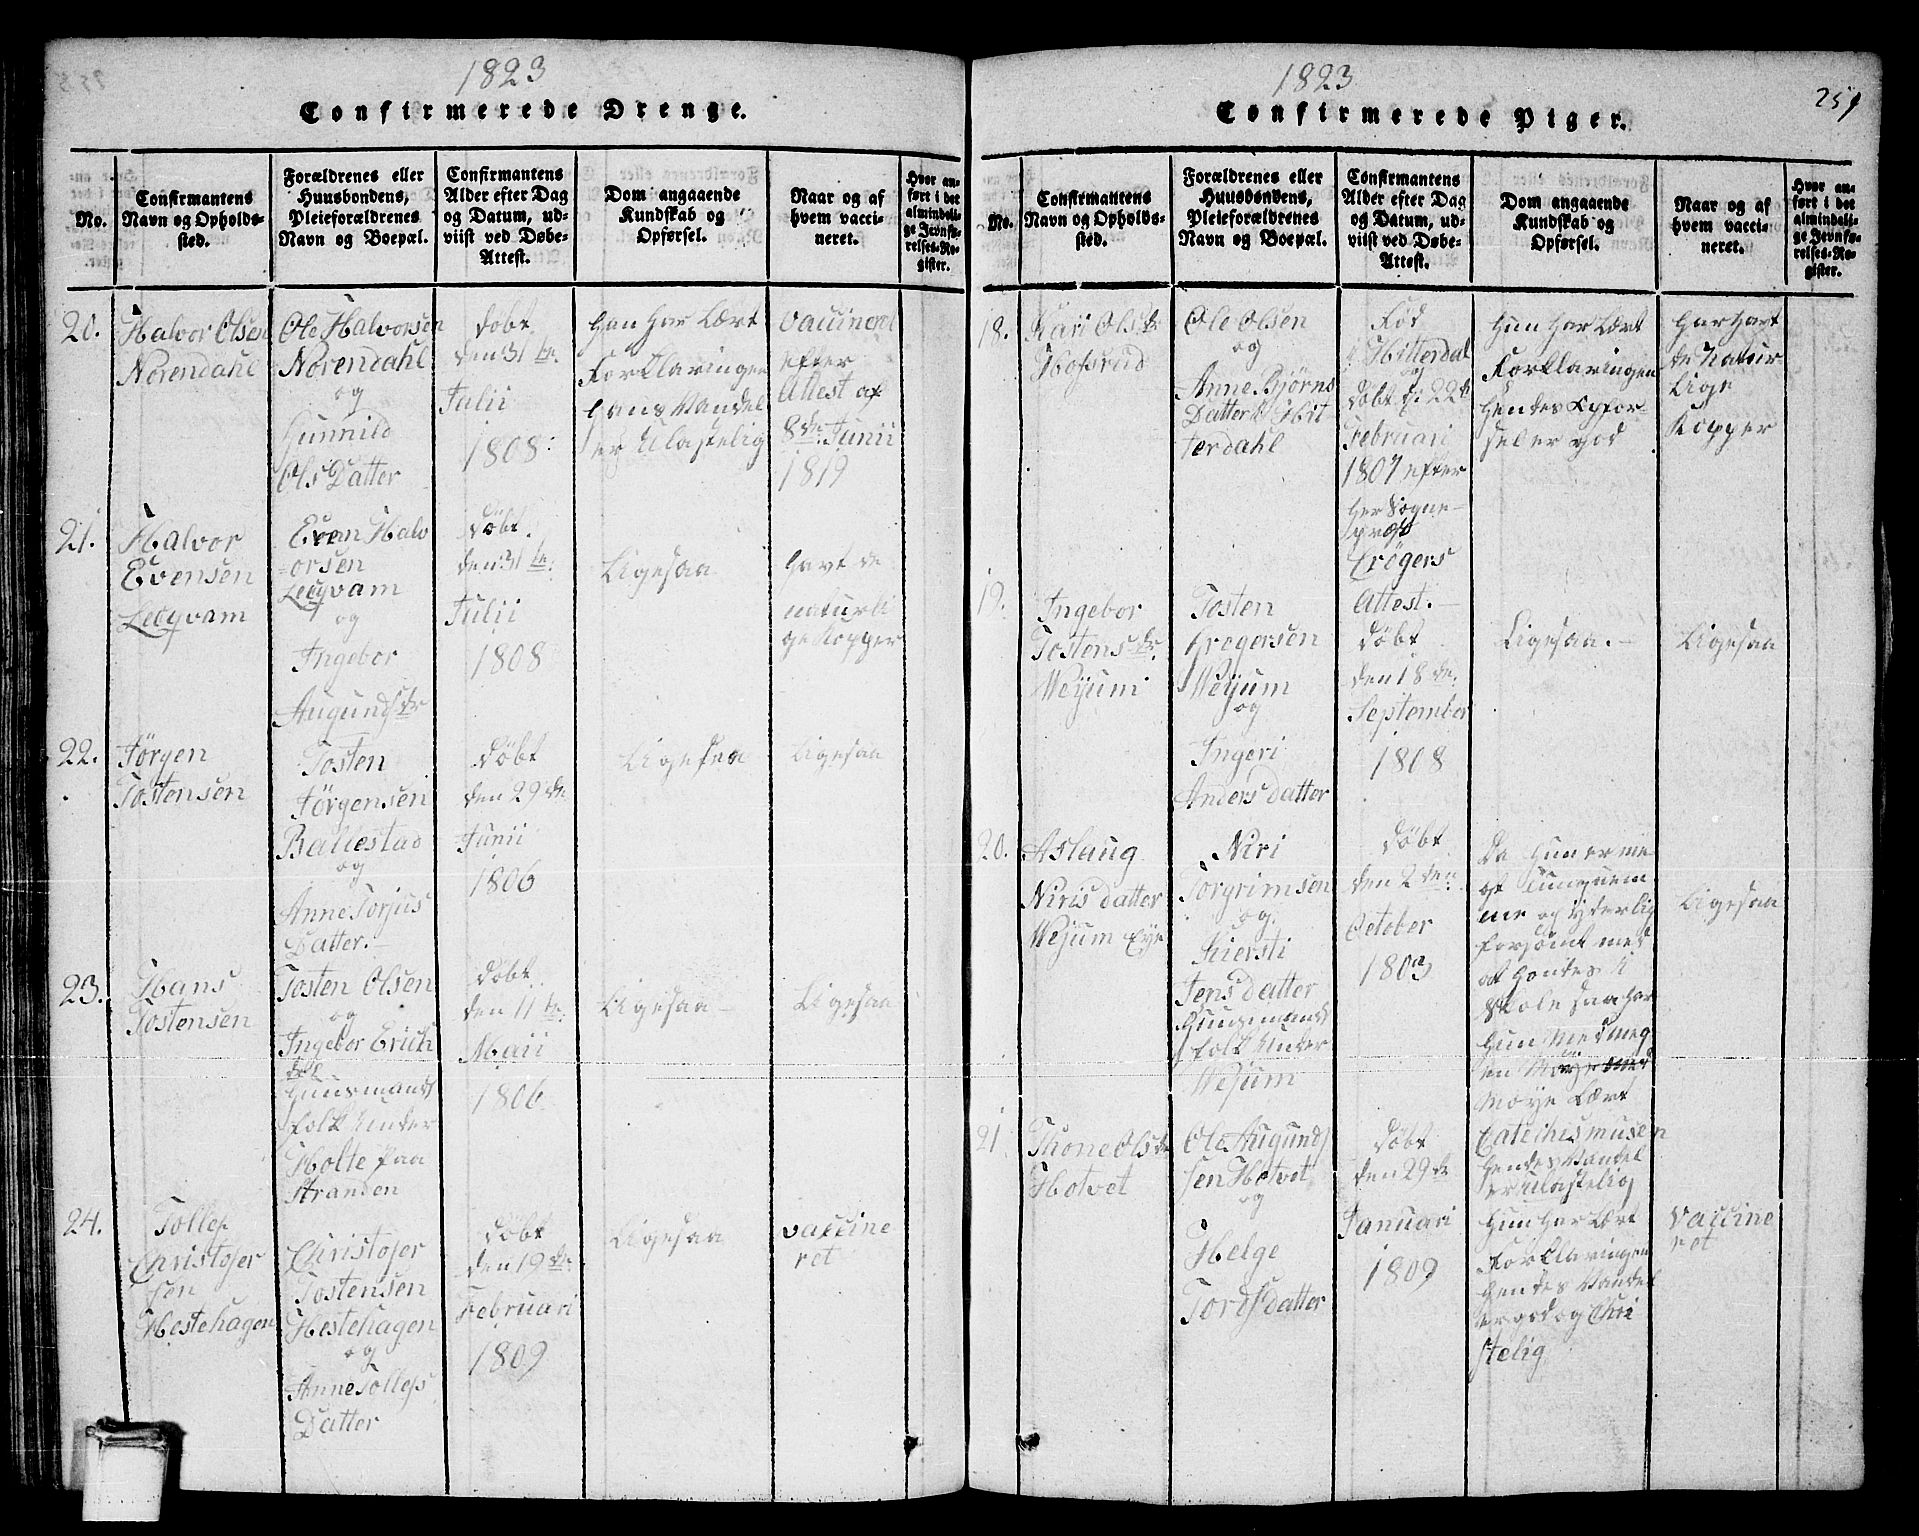 1823
Confirmerede Drenge.
No.
Confirmantens
Navn og Opholds-
sted.
Forældrenes eller
Huusbondens,
Pleieforældrenes
Navn og Boepæl.
Confirmantens
Alder efter Dag
og Datum, ud-
viist ved Døbe-
Attest.
Dom angaaende
Kundskab og
Opførsel.
Naar og af
hvem vacci-
neret.
Hvor an-
ført i det
almindeli-
ge Jevnfø-
relses-Re-
gister.
20.
Halvor Olsen
Norendahl
Ole Halvorsen
Norendahl
og
Gunnild
Ols Datter
døbt
den 31te
Julii
1808:
Han har Lært
Forklaringen
hans Vandel
er Ulastelig
efter
Attest af
8de Junii
1819
21.
Halvor
Evensen
Leqvam
Even Halv
orsen
Leqvam
og
Ingebor
Augundsdr
døbt
den 31te
Julii
1808
Ligesaa
havt de
naturli
ge Kopper
22.
Jørgen
Tostensen
Tosten
Jørgensen
Ballestad
og
Anne Torjus
Datter.-
døbt
den 29de
Junii
1806
Ligesaa
Ligesaa
23.
Hans
Tostensen
Tosten Olsen
og
Ingebor Erich
Huusmands
folk Under
Holte paa
Stranden
døbt
den 11te
Maii
1806
Ligesaa -
Ligesaa
24.
Tollef
Christofer
sen
Hestehagen
Christofer
Tostensen
Hestehagen
og
Anne Tollefs
Datter
døbt
den 19de
Februari
1809
Ligesaa
vaccine
ret
1823
259
Confirmerede Piger.
No.
Confirmantens
Navn og Opholds-
sted.
Forældrenes eller
Huusbondens,
Pleieforældrenes
Navn og Boepæl.
Confirmantens
Alder efter Dag
og Datum, ud-
viist ved Døbe-
Attest.
Dom angaaende
Kundskab og
Opførsel.
Naar og af
hvem vacci-
neret.
Hvor an-
ført i det
almindeli-
ge Jevnfø-
relses-Re-
gister.
18.
Kari Olsdr
Ole Olsen
og
Anne Bjørns
Datter i Hit
terdahl
Fød
i Hitterdal
og
Døbt d: 22de
Februari
1807 efter
Her Sogne-
prost
Crøgers
Attest.-
Hun har Lært
Forklaringen
hendes Opfør-
sel er god
har havt
de Natur
lige
Kopper
19.
Ingebor
Tostensdr
Wejum
Tosten
Gregersen
Wejum
og
Ingeri
Anders datter
døbt
den 18de
September
1808
Ligesaa.-
Ligesaa
20.
Aslaug
Niris datter
Wejum Eye
Niri
Torgrimsen
og
Kiersti
Jens datter
Huusmands
folk Under
Wejum
døbt
den 2den
October
1803
Da Hun er me
get tungnem
me og yderlig
forsømt med
at holdes i
Skole saa har
hun med meg
en
Møye Lært
Catechismusen
hendes Vandel
er Ulastelig
Ligesaa
21
Thone Olsdr
Hotvet
Ole Augunds
sen Hotvet
og
Helge
Tords datter
døbt
den 29de
Januari
1809
Hun har Lært
Forklaringen
hendes Vandel
er god og Chri
stelig
Vaccine
ret